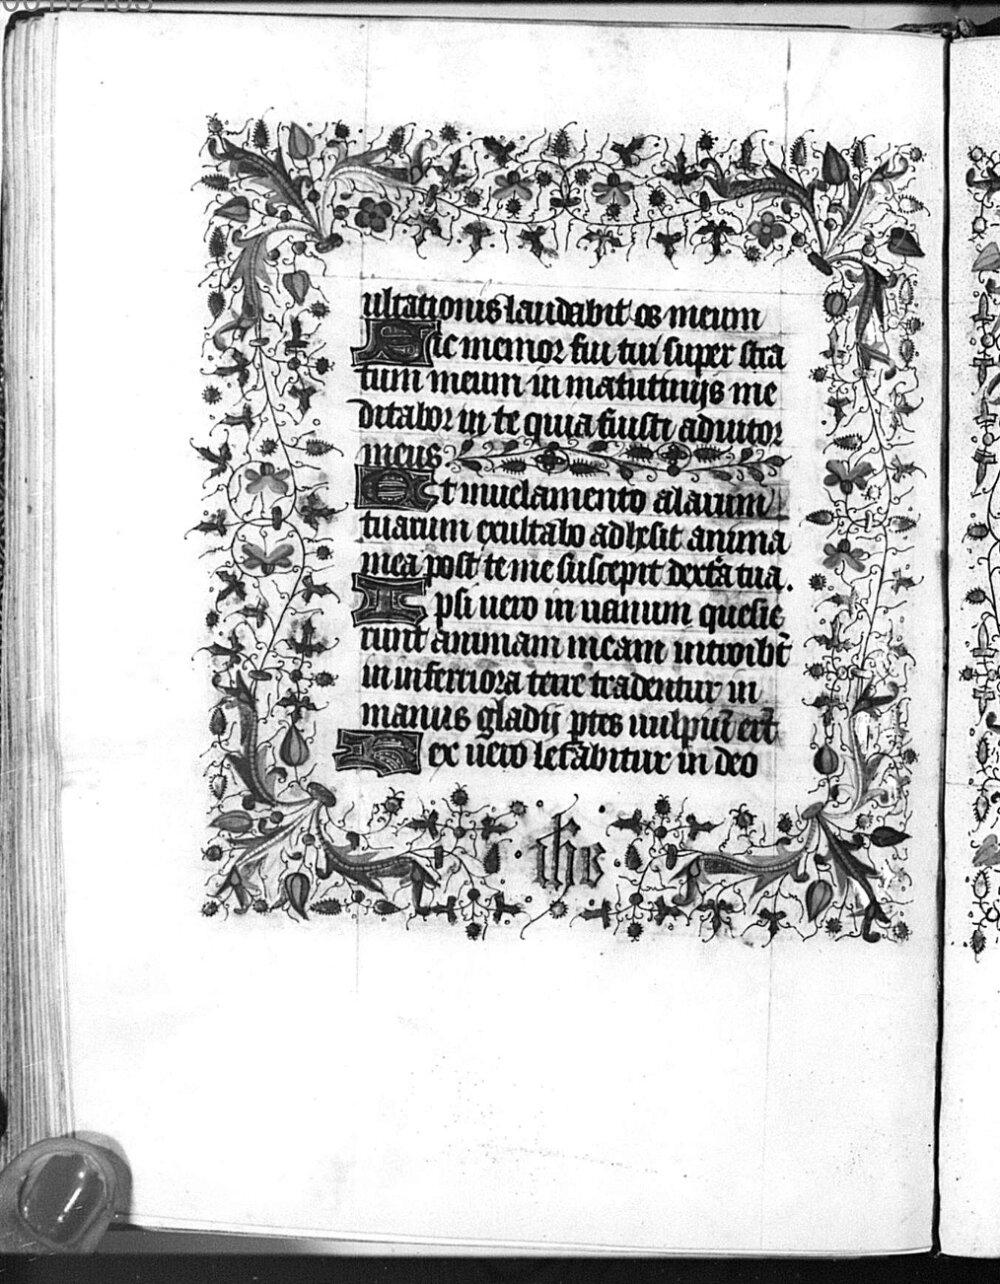 ultationis laudabit os meum
Sic memor fui tui super stra
tum meum in matutinijs me
ditabor in te quia fuisti adiutor
meus.
Et inuelamento alarum
tuarum exultabo adhesit anima
mea post te me suscepit dext̃a tua.
Ipsi uero in uanum quesie
runt animam meam introibũt
in inferiora terre tradentur in
manus gladij ptes uulpiũ erũt
Rex uero letabitur in deo
ihs